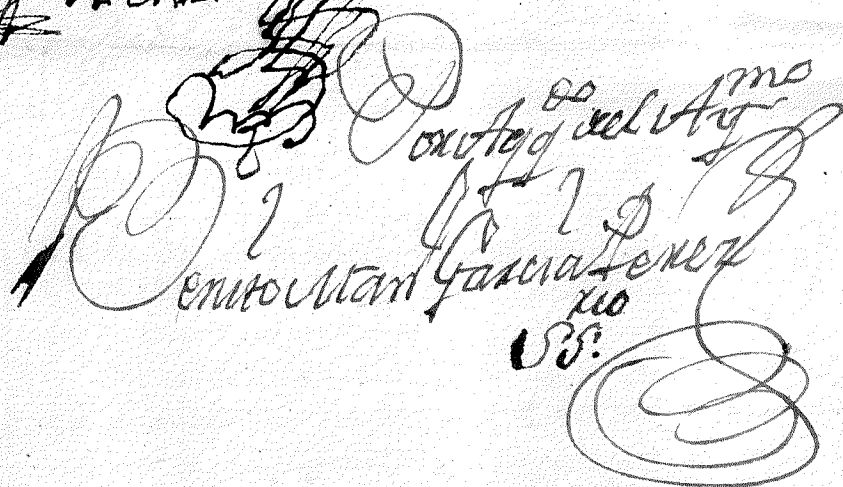 Por Aqdo del Aymo
Benito Man Garcia Perez
SSrio.